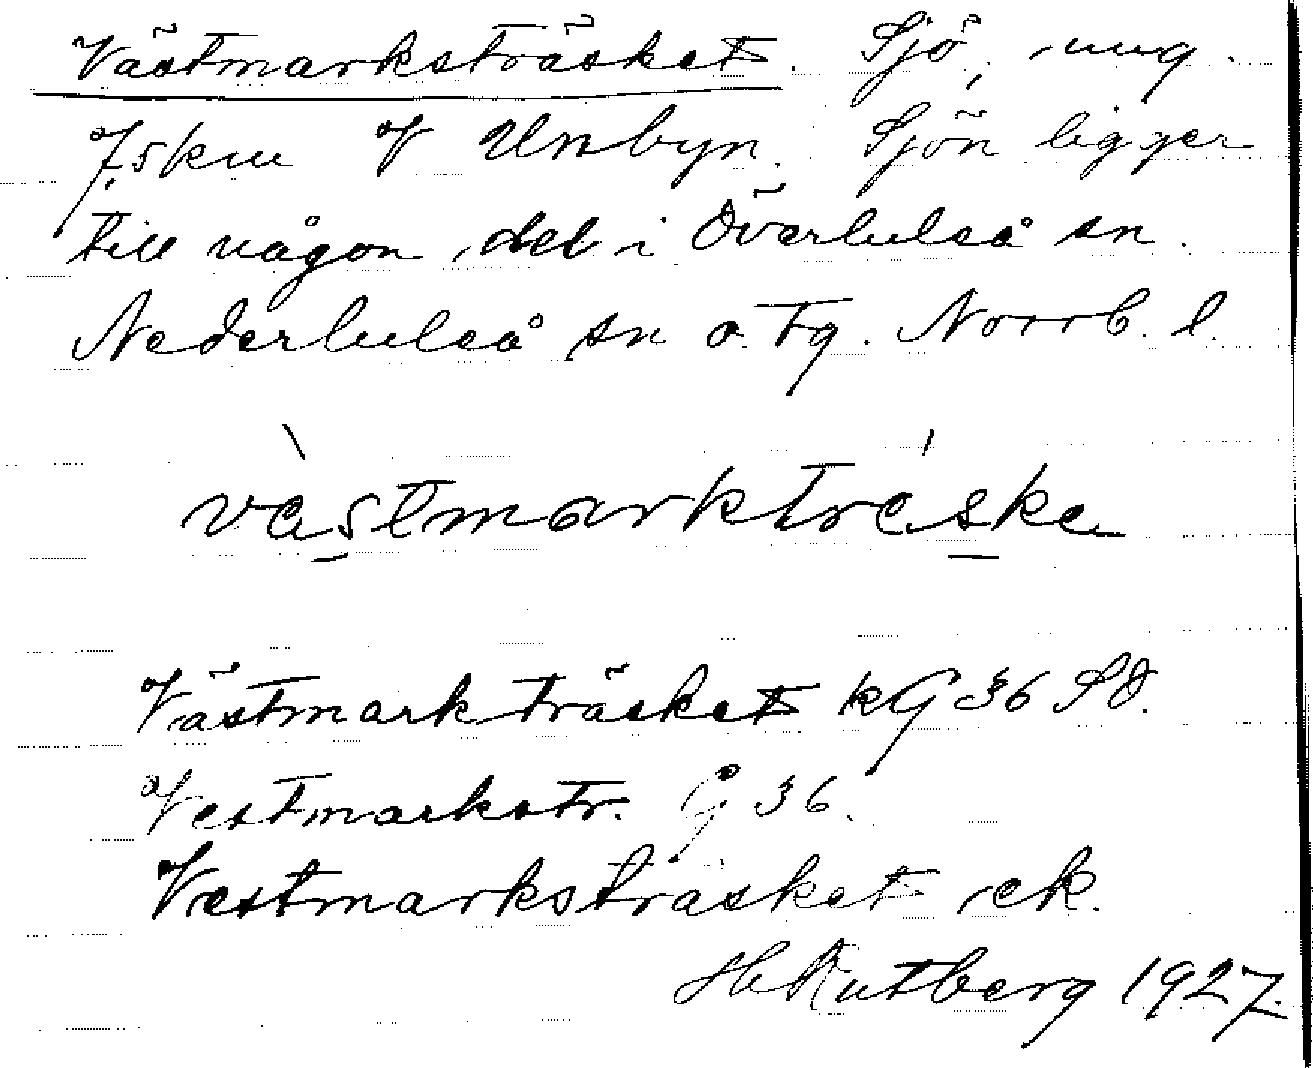 Västmarksträsket. Sjö, ung.
7,5 km V Unbyn. Sjön ligger
till någon del i Överluleå sn.
Nederluleå sn o. tg. Norrb. l.
vàstmarktráske
Västmarkträsket kG 36 SO.
Vestmarkstr. G 36.
Vestmarksträsket ek.
H Rutberg 1927.